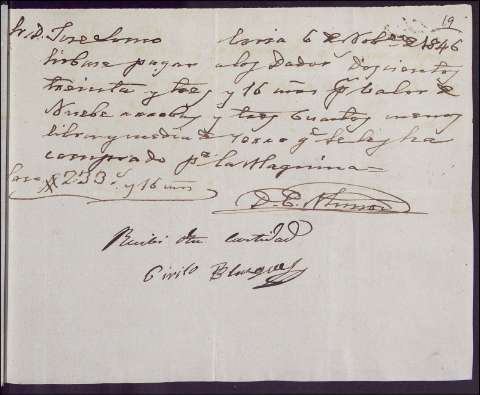 19
Sr. D. Jose Coria 6 de Nobre de 1846
Sirbase pagar a los Dador Doscientos
treinta y tres rs y 16 mrs pr balor de
Nuebe arrobas y tres Cuartos menos
libra y media de qe se les ha
comprado pa la Maquina=
Son rs 233 y 16 mrs
Recibi dha cantidad
Cirilo Blazquez